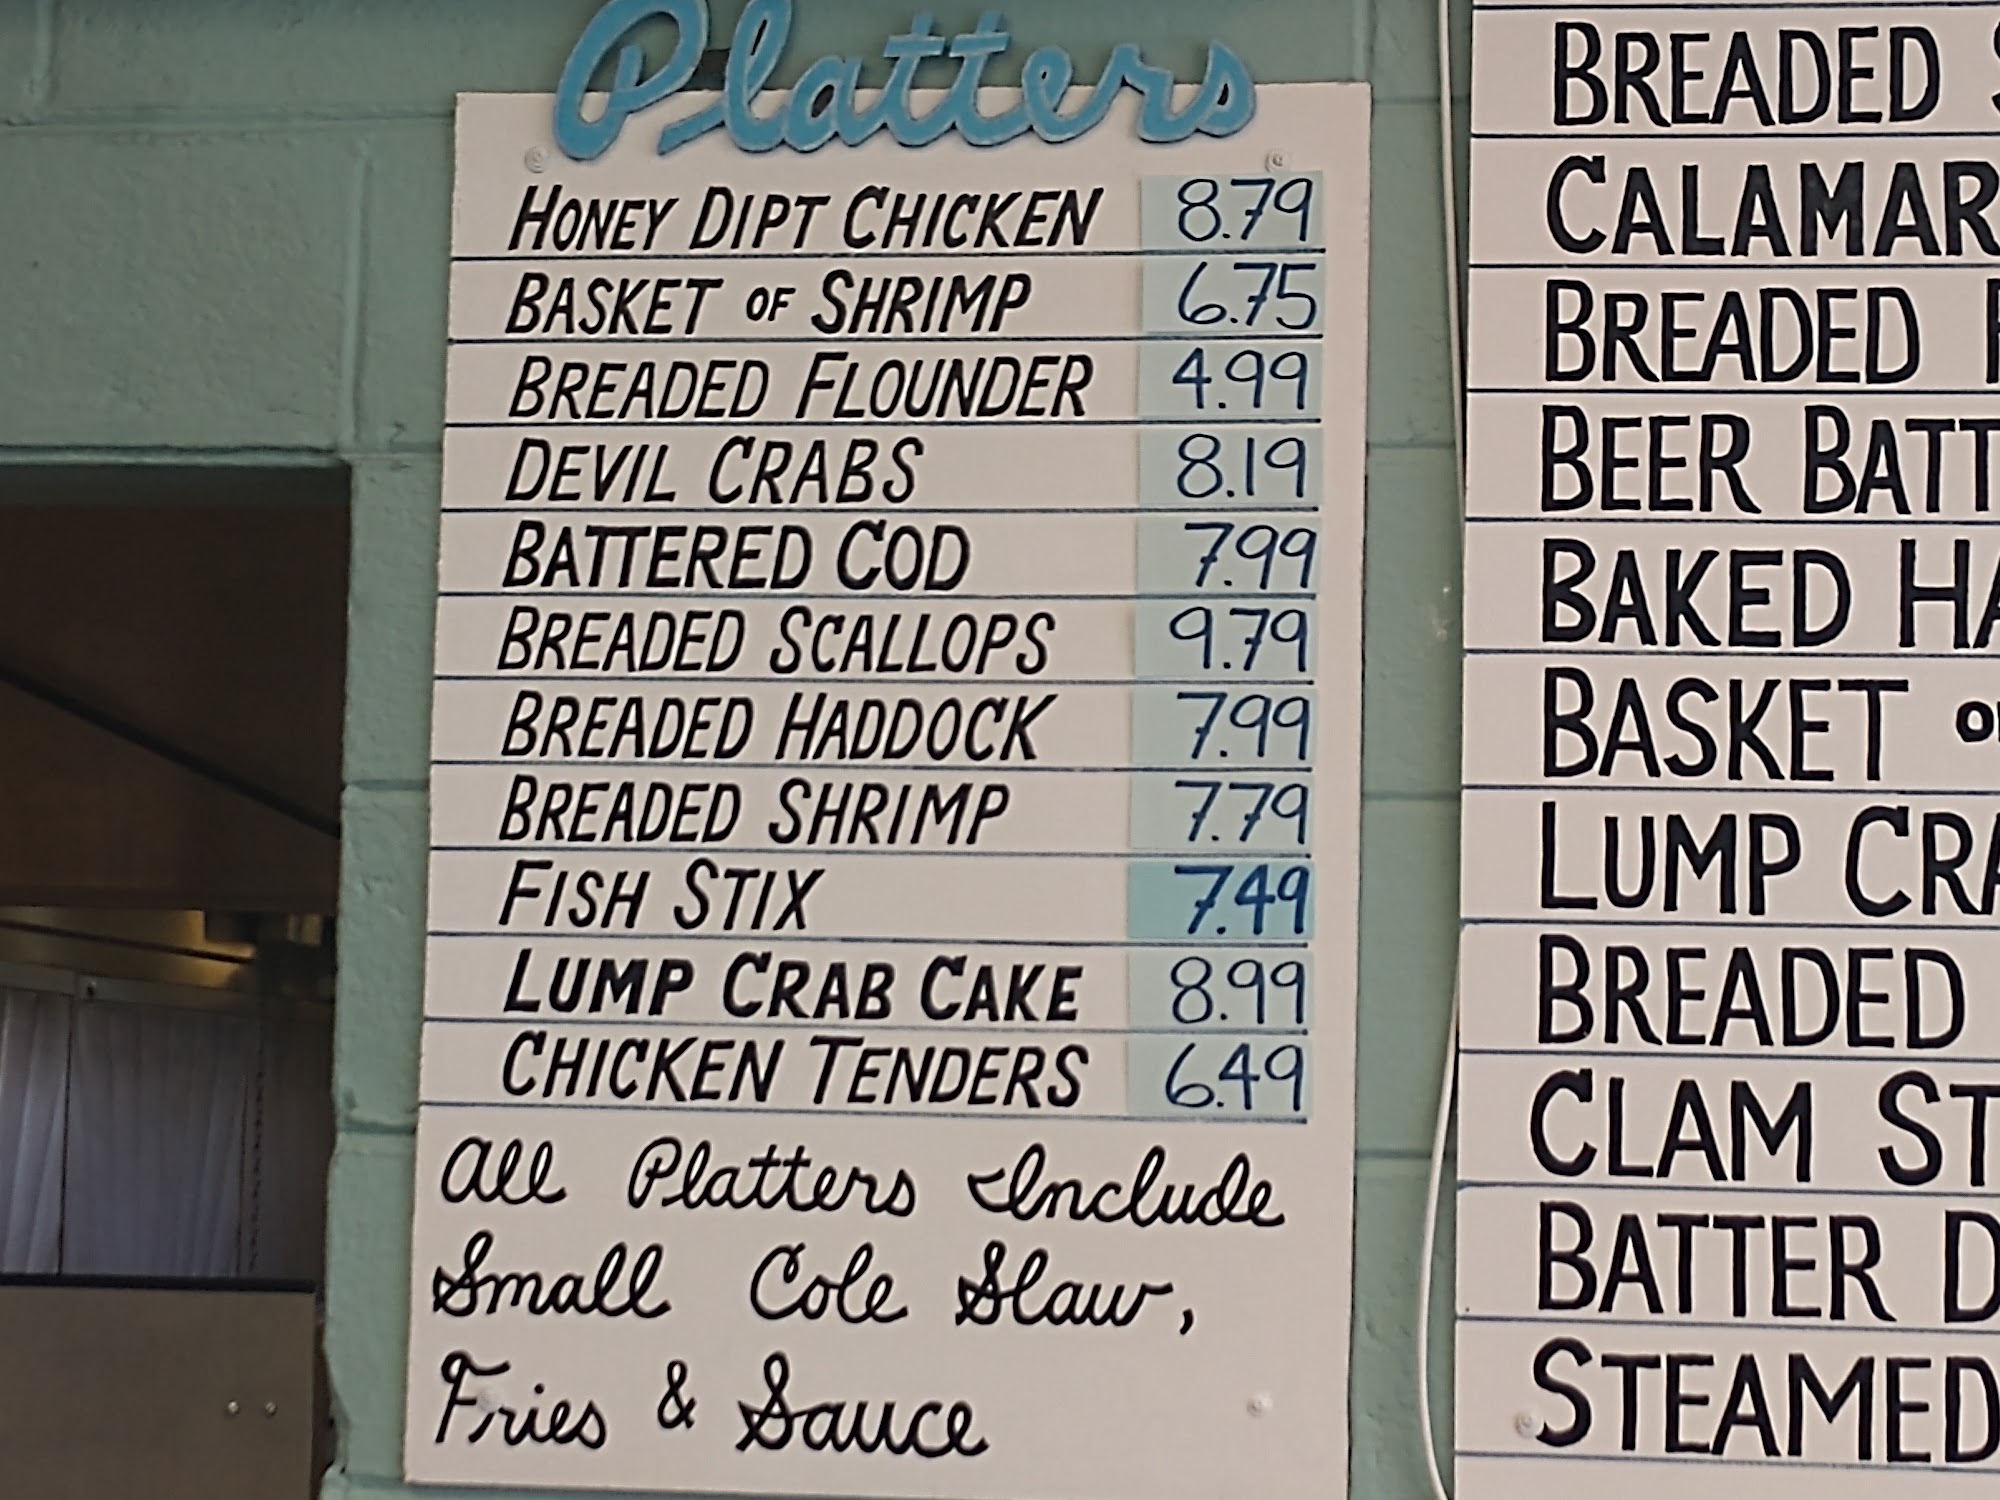 Platters
HONEY DIPT CHICKEN 8.79
BASKET OF SHRIMP 6.75
BREADED FLOUNDER 4.99
DEVIL CRABS 8.19
BATTERED COD 7.99
BREADED SCALLOPS 9.79
BREADED HADDOCK 7.99
BREADED SHRIMP 7.79
FISH STIX 7.49
LUMP CRAB CAKE 8.99
CHICKEN TENDERS 6.49
All Platters Include
Small Cole Slaw,
Fries & Sauce
BREADED
CALAMAR
BREADED
BEER BATT
BAKED HA
BASKET
LUMP CRA
BREADED
CLAM ST
BATTER D
STEAMED